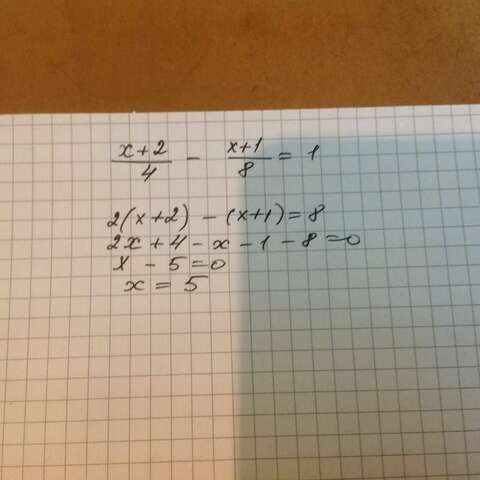 (x+2)/4 - (x+1)/8 = 1
2(x+2) - (x+1) = 8
2x + 4 - x - 1 - 8 = 0
x - 5 = 0
x = 5